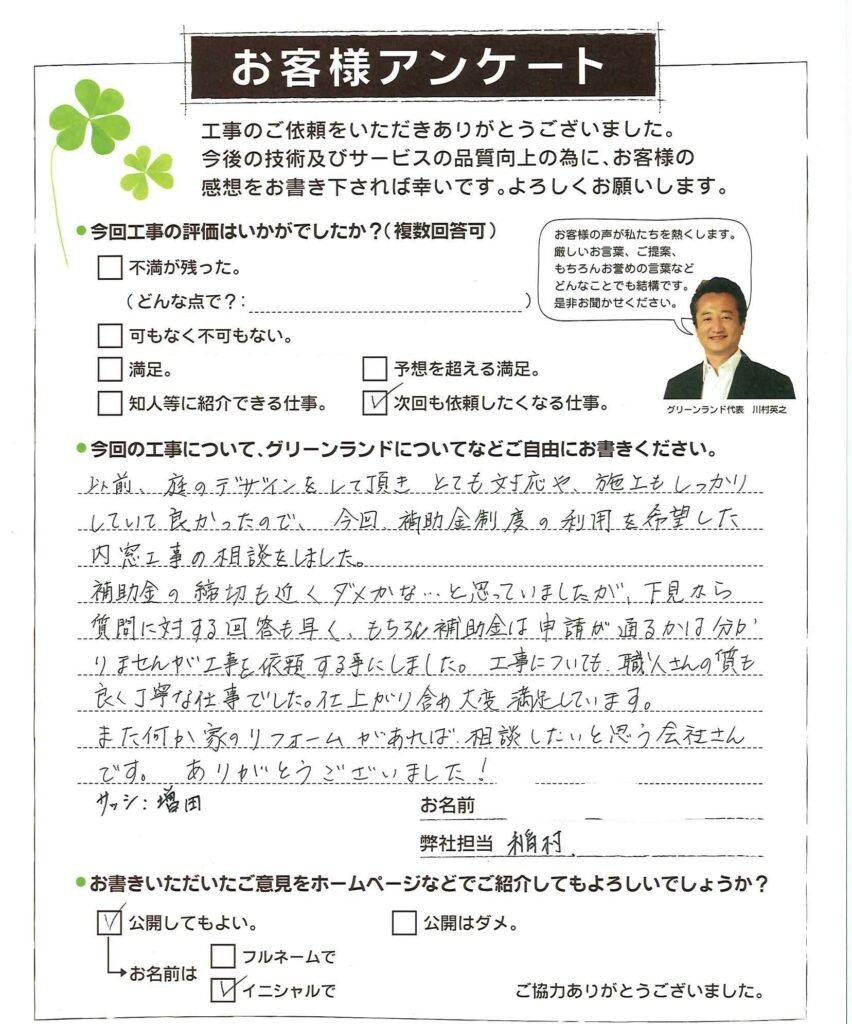 お客様アンケート
工事のご依頼をいただきありがとうございました。
今後の技術及びサービスの品質向上の為に、お客様の
感想をお書き下されば幸いです。よろしくお願いします。
今回工事の評価はいかがでしたか？(複数回答可)
不満が残った。
(どんな点で？: )
可もなく不可もない。
満足。
予想を超える満足。
知人等に紹介できる仕事。
次回も依頼したくなる仕事。
お客様の声が私たちを熱くします。
厳しいお言葉、ご提案、
もちろんお誉めの言葉など
どんなことでも結構です。
是非お聞かせください。
グリーンランド代表 川村英之
今回の工事について、グリーンランドについてなどご自由にお書きください。
以前、庭のデザインをして頂き とても対応や、施工もしっかり
していて良かったので、今回、補助金制度の利用を希望した
内窓工事の相談をしました。
補助金の締切も近くダメかな…と思っていましたが、下見から
質問に対する回答も早く、もちろん補助金は申請が通るかは分か
りませんが工事を依頼する事にしました。工事についても、職人さんの質も
良く丁寧な仕事でした。仕上がり含め大変満足しています。
また何か家のリフォームがあれば、相談したいと思う会社さん
です。 ありがとうございました！
サッシ：増田
お名前
弊社担当 稲村
お書きいただいたご意見をホームページなどでご紹介してもよろしいでしょうか？
公開してもよい。
公開はダメ。
お名前は
フルネームで
イニシャルで
ご協力ありがとうございました。